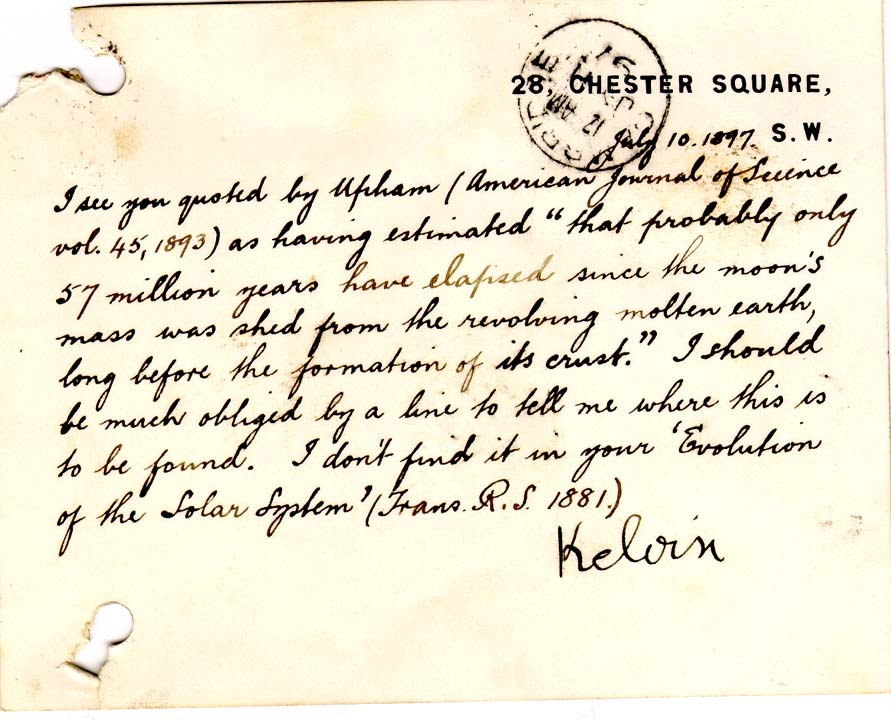 28, CHESTER SQUARE,
July 10. 1897. S. W.
I see you quoted by Upham (American Journal of Science
vol. 45, 1893) as having estimated "that probably only
57 million years have elapsed since the moon's
mass was shed from the revolving molten earth,
long before the formation of its crust." I should
be much obliged by a line to tell me where this is
to be found. I don't find it in your 'Evolution
of the Solar System' (Trans. R. S. 1881.)
Kelvin